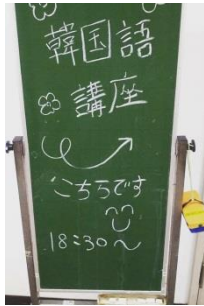 韓国語
講座
こちらです
18:30〜